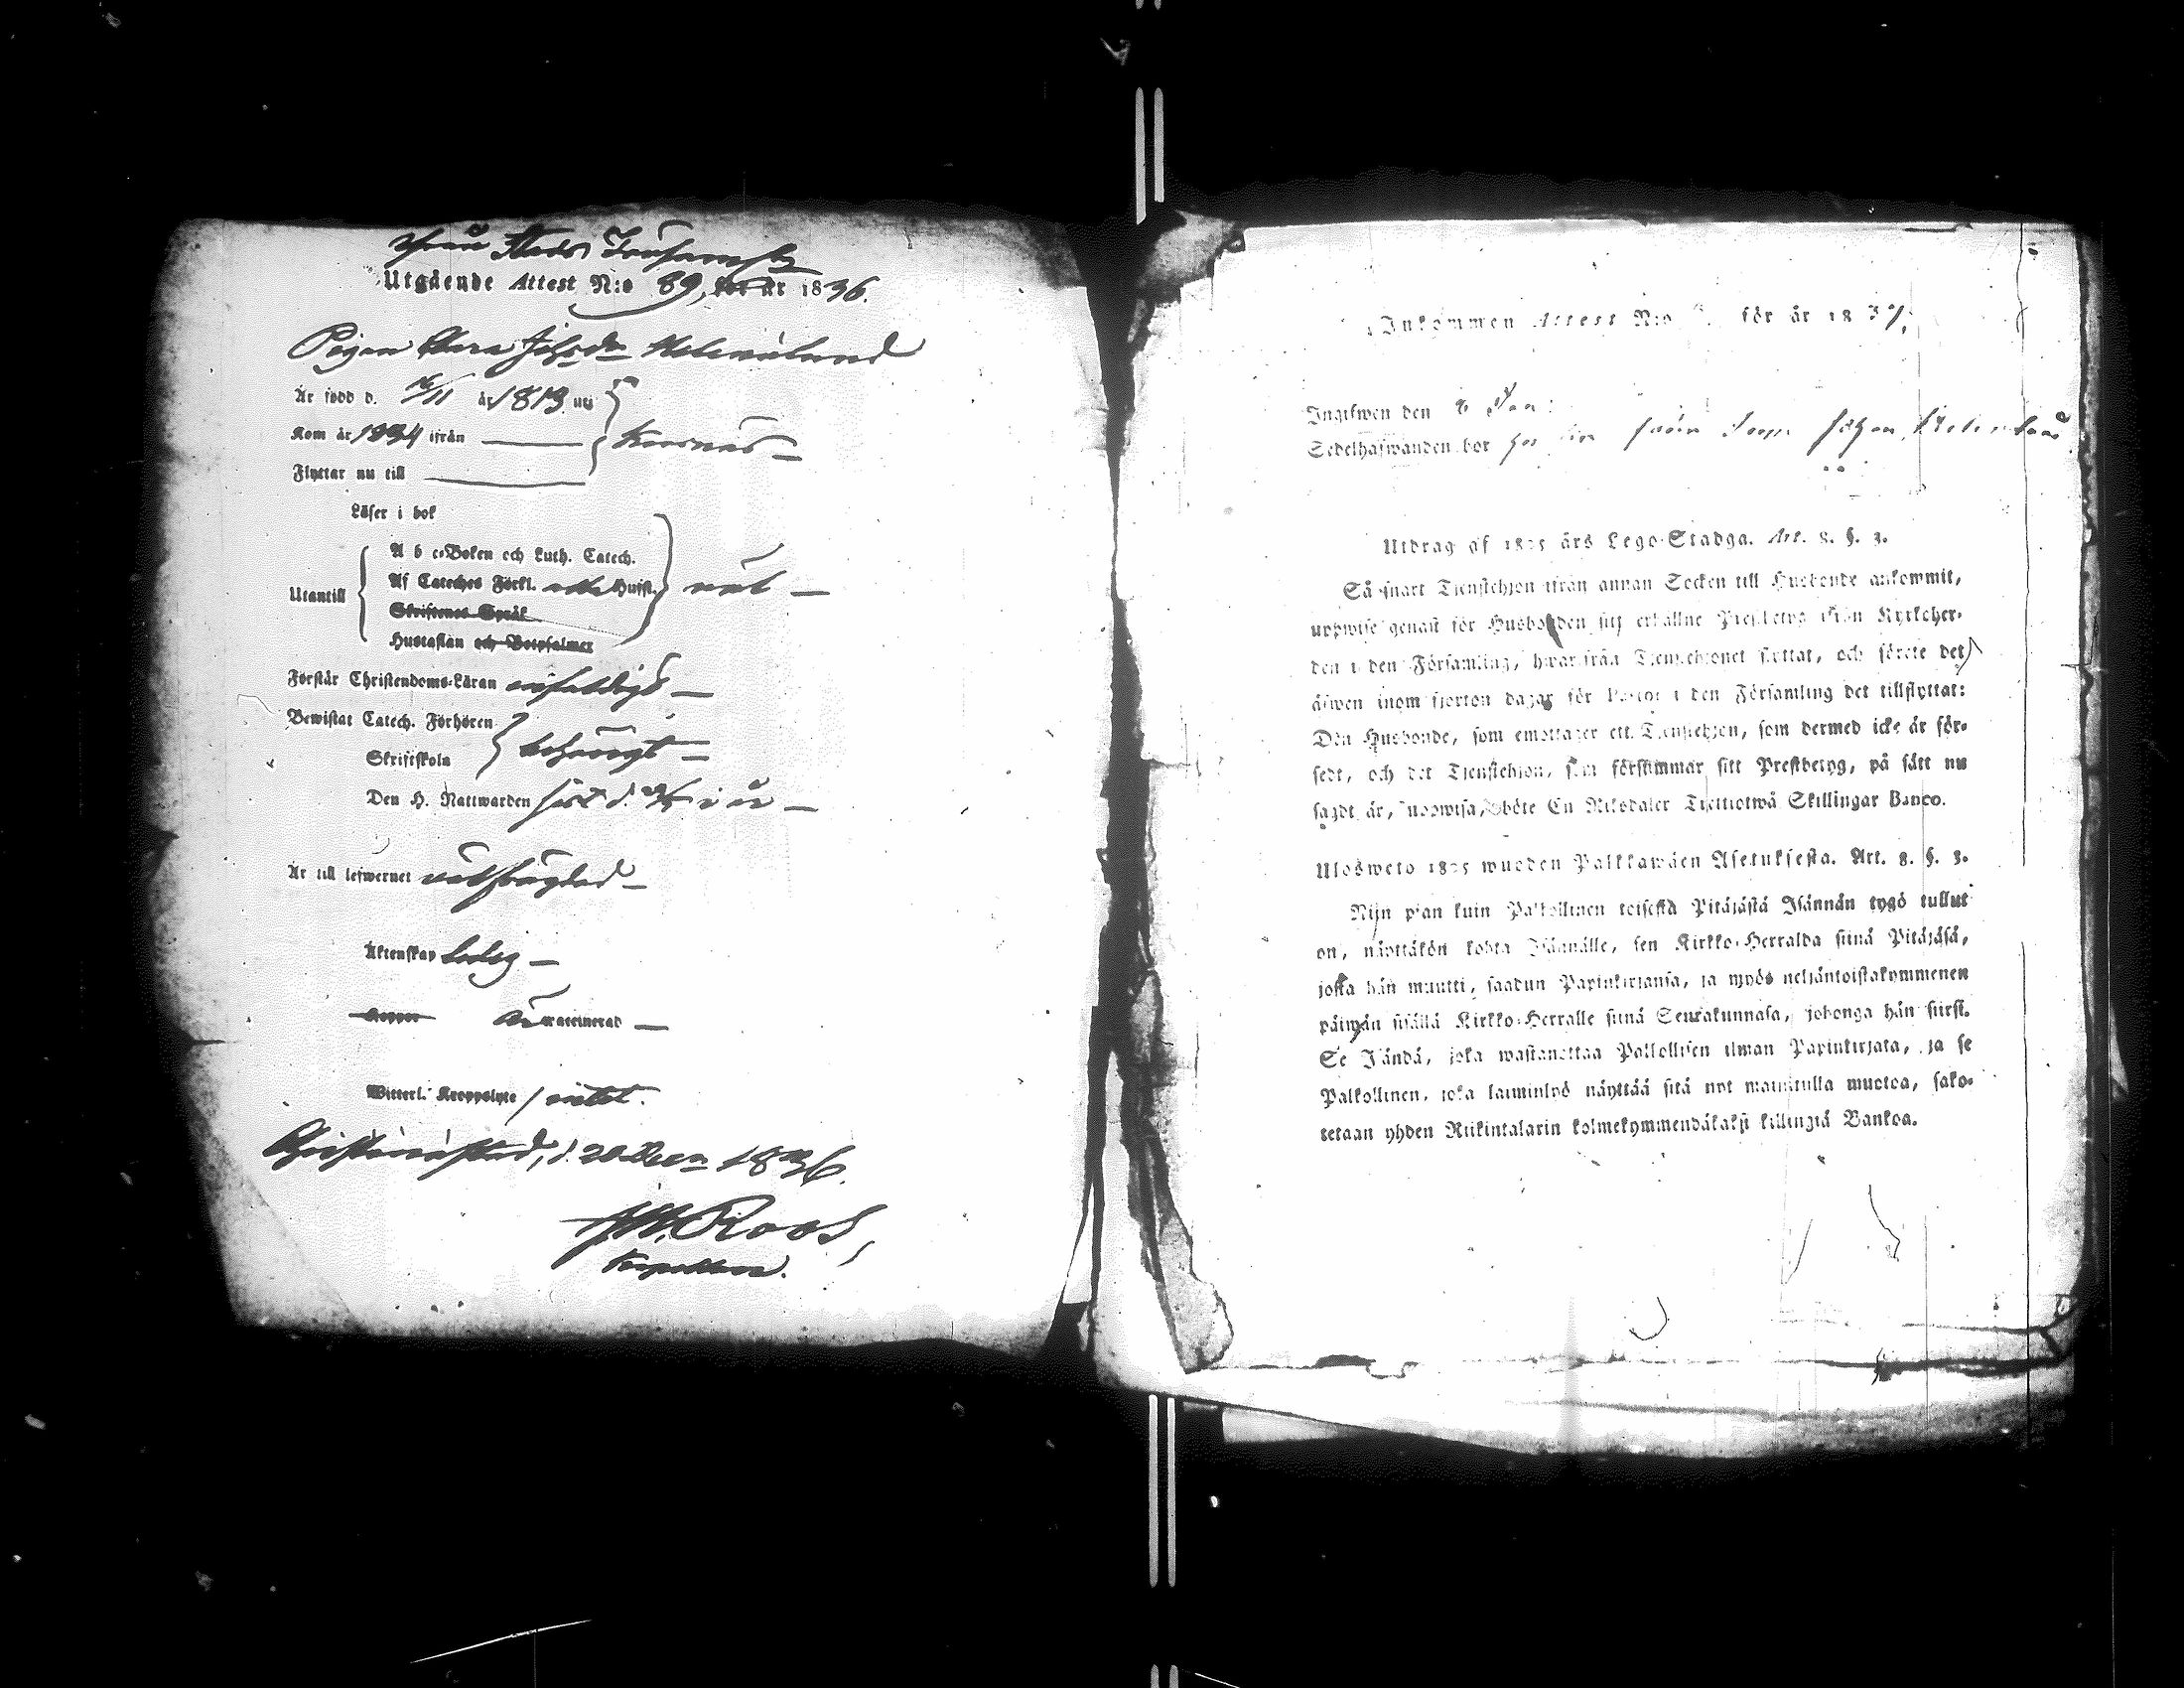 Utgående Attest N:o 89, för år 1836.
Pigan Johsdr Helenelund
Är född d. /11 år 1813 uti
Kom år 1834 ifrån
Korsnäs
Flyttar nu till
Läser i bok
A b c-Boken och Luth. Catech.
Utantill Af Cateches Förkl. Husfl. väl
Skriftenes Språk
Hustaflan och Botpsalmer
Förstår Christendoms-Läran enfaldigt
Bewistat Catech. Förhören
behörigt
Skriftskola
Den H. Nattwarden sist d. i år
Är till lefwernet wälfrägdad
Äktenskap ledig
Koppor Är waccinerad
Witterl. Kroppslyte / intet.
Christinæstad, d. 20 Decr 1836.
Roos,
Kapellan.
Inkommen Attest N:o för år 1837.
Ingifwen den 8 Jan:
Sedelhafwanden bor hos sin
Utdrag af 1805 års Lego-Stadga. Art. 8. §. 3.
Så snart Tjenstehjon ifrån annan Socken till Husbonde ankommit,
uppwise genast för Husbonden sitt erhållne Prestbetyg ifrån Kyrkoher-
den i den Församling, hwarifrån Tjenstehjonet flyttat, och förete det
äfwen inom fjorton dagar för Pastor i den Församling det tillflyttat:
Den Husbonde, som emottager ett Tjenstehjon, som dermed icke är för-
sedt, och det Tjenstehjon, som försummar sitt Prestbetyg, på sätt nu
sagdt är, uppwisa, böte En Riksdaler Trettiotwå Skillingar Banco.
Ulosweto 1805 wuoden Palkkawäen Asetuksesta. Art. 8. §. 3.
Nijn pian kuin Palkollinen toisesta Pitäjästä Isännän tygö tullut
on, näyttäkön kohta Isännälle, sen Kirkko-Herralda siinä Pitäjäsä,
josta hän muutti, saadun Papinkirjansa, ja myös neljäntoistakymmenen
päiwän sisällä Kirkko-Herralle siinä Seurakunnasa, johonga hän siirsi.
Se Isändä, joka wastanottaa Palkollisen ilman Papinkirjata, ja se
Palkollinen, joka laiminlyö näyttää sitä nyt mainitulla muotoa, sako-
tetaan yhden Riikintalarin kolmekymmendäkaksi killingiä Bankoa.